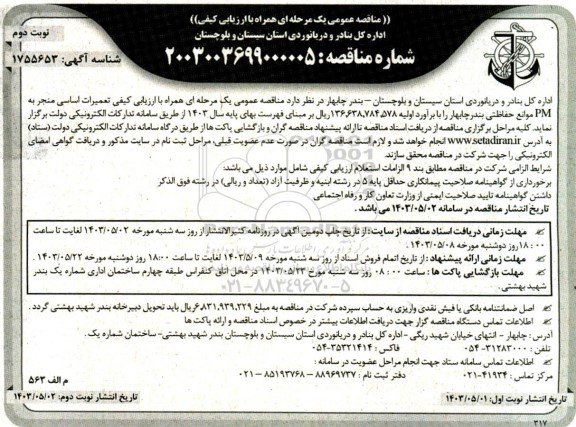 ((مناقصه عمومی یک مرحله ای همراه با ارزیابی کیفی))
نوبت دوم
اداره کل بنادر و دریانوردی استان سیستان و بلوچستان
شماره مناقصه : ۲۰۰۳۰۰۳۶۹۹۰۰۰۰۰۵
شناسه آگهی: ۱۷۵۵۶۵۳
اداره کل بنادر و دریانوردی استان سیستان و بلوچستان – بندر چابهار در نظر دارد مناقصه عمومی یک مرحله ای همراه با ارزیابی کیفی تعمیرات اساسی منجر به
PM موانع حفاظتی بندرچابهار را با برآورد اولیه ۱۳۶,۶۳۸,۷۸۴,۵۷۸ریال بر مبنای فهرست بهای پایه سال ۱۴۰۳ از طریق سامانه تدارکات الکترونیکی دولت برگزار
نماید. کلیه مراحل برگزاری مناقصه از دریافت اسناد مناقصه تا ارائه پیشنهاد مناقصه گران و بازگشایی پاکت ها از طریق درگاه سامانه تدارکات الکترونیکی دولت (ستاد)
به آدرس www.setadiran.ir انجام خواهد شد و لازم است مناقصه گران در صورت عدم عضویت قبلی، مراحل ثبت نام در سایت مذکور و دریافت گواهی امضای
الکترونیکی را جهت شرکت در مناقصه محقق سازند.
شرایط الزامی شرکت در مناقصه مطابق بند ۹ الزامات استعلام ارزیابی کیفی شامل موارد ذیل می باشد:
برخورداری از گواهینامه صلاحیت پیمانکاری حداقل پایه ۵ در رشته ابنیه و ظرفیت آزاد (تعداد و ریالی) در رشته فوق الذکر
داشتن گواهینامه تایید صلاحیت ایمنی از وزارت تعاون کار و رفاه اجتماعی
تاریخ انتشار مناقصه در سامانه ۱۴۰۳/۰۵/۰۲ می باشد.
مهلت زمانی دریافت اسناد مناقصه از سایت: از تاریخ چاپ دومین آگهی در روزنامه کثیرالانتشار از روز سه شنبه مورخه ۱۴۰۳/۰۵/۰۲ لغایت تا ساعت
۱۸:۰۰ روز دوشنبه مورخه ۱۴۰۳/۰۵/۰۸.
مهلت زمانی ارائه پیشنهاد: از تاریخ اتمام فروش اسناد از روز سه شنبه مورخه ۱۴۰۳/۵/۰۹ لغایت تا ساعت ۱۸:۰۰ روز دوشنبه مورخه ۱۴۰۳/۰۵/۲۲ .
مهلت بازگشایی پاکت ها : ساعت ۰۸:۰۰ روز سه شنبه مورخ ۱۴۰۳/۰۵/۲۳ در محل اتاق کنفراس طبقه چهارم ساختمان اداری شماره یک بندر
شهید بهشتی.
۰۲۱-۸۸۳۴۹۶۷۰-۵
اصل ضمانتنامه بانکی یا فیش نقدی واریزی به حساب سپرده شرکت در مناقصه به مبلغ ۶,۸۳۱,۹۳۹,۲۲۹ریال باید تحویل دبیرخانه بندر شهید بهشتی گردد .
اطلاعات تماس دستگاه مناقصه گزار جهت دریافت اطلاعات بیشتر در خصوص اسناد مناقصه و ارائه پاکت ها
آدرس : چابهار - انتهای خیابان شهید ریگی - اداره کل بنادر و دریانوردی استان سیستان و بلوچستان بندر شهید بهشتی- ساختمان شماره یک .
تلفن : ۳۱۲۸۳۰۰۰-۰۵۴ فاکس : ۳۵۳۲۱۴۱۴-۰۵۴
اطلاعات تماس سامانه ستاد جهت انجام مراحل عضویت در سامانه :
مرکز تماس : ۴۱۹۳۴-۰۲۱ دفتر ثبت نام : ۸۸۹۶۹۷۳۷ – ۸۵۱۹۳۷۶۸ -۰۲۱
م الف ۵۶۳
تاریخ انتشار نوبت اول: ۱۴۰۳/۰۵/۰۱
تاریخ انتشار نوبت دوم: ۱۴۰۳/۰۵/۰۲
۳۱۷